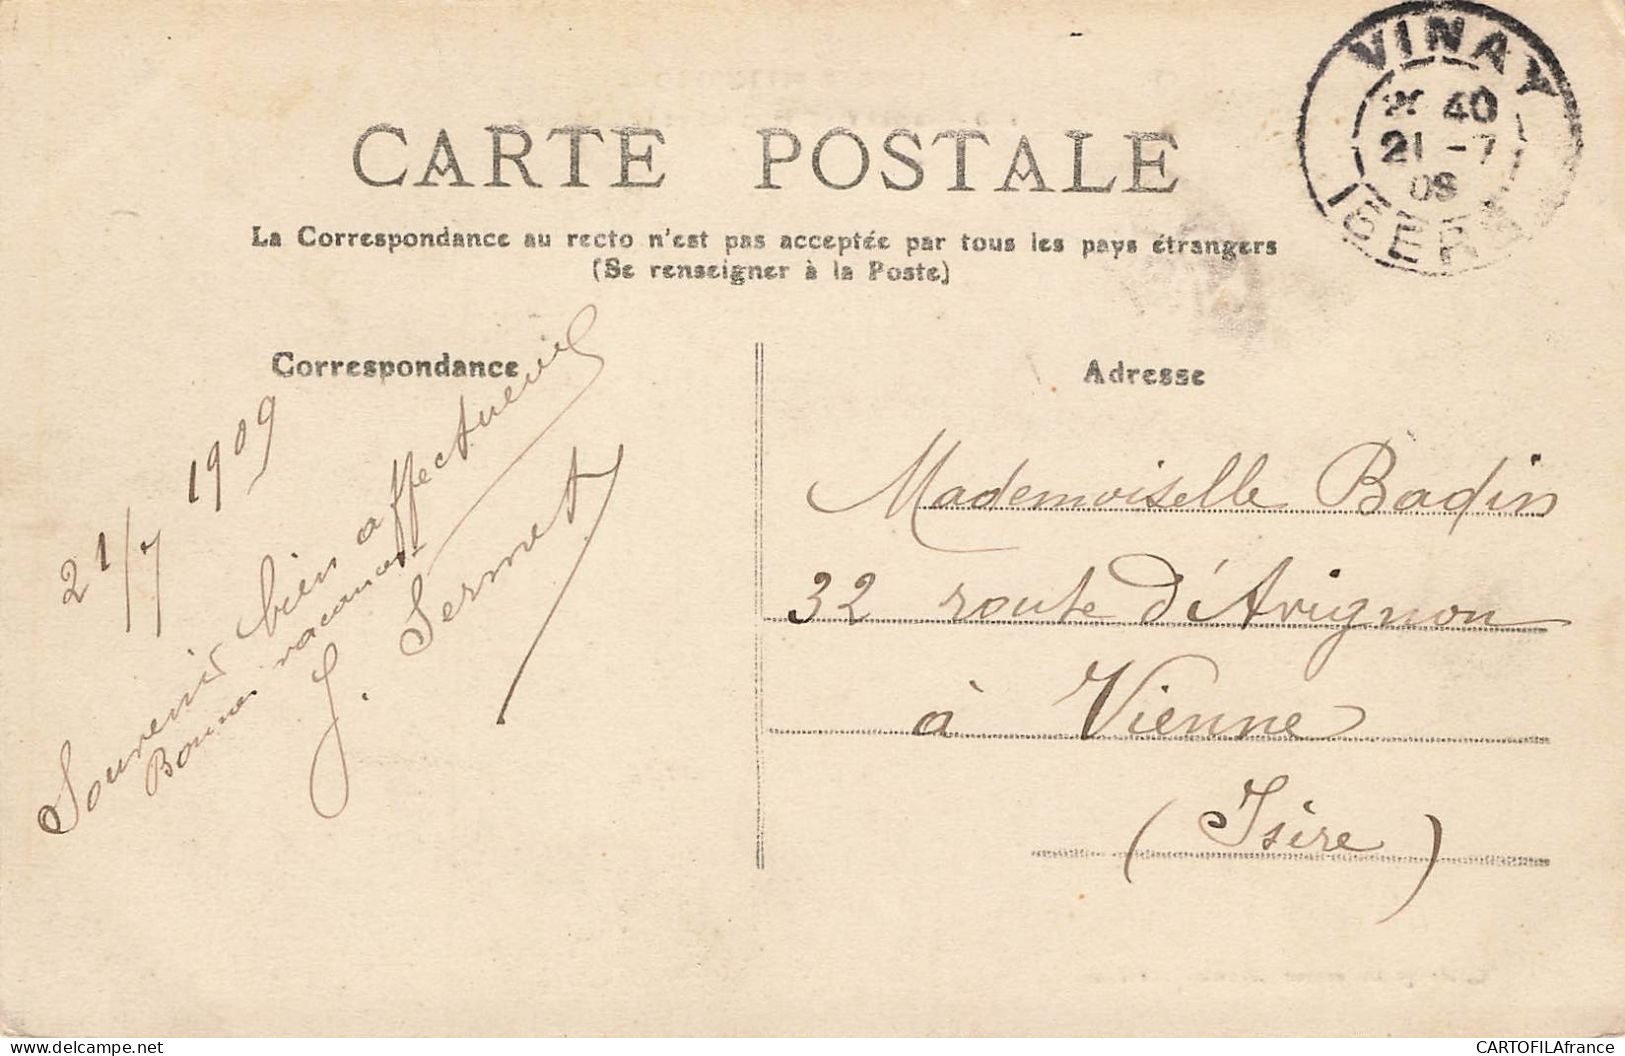 VINAY
40
21 -7
09
ISERE
CARTE POSTALE
La Correspondance au recto n'est pas acceptée par tous les pays étrangers
(Se renseigner à la Poste)
Correspondance
21/7 1909
Souvenir bien affectueux
Bonnes vacances
J. Sermet
Adresse
Mademoiselle Badin
32 route d'Avignon
à Vienne
(Isère)
delcampe.net
CARTOFILAfrance